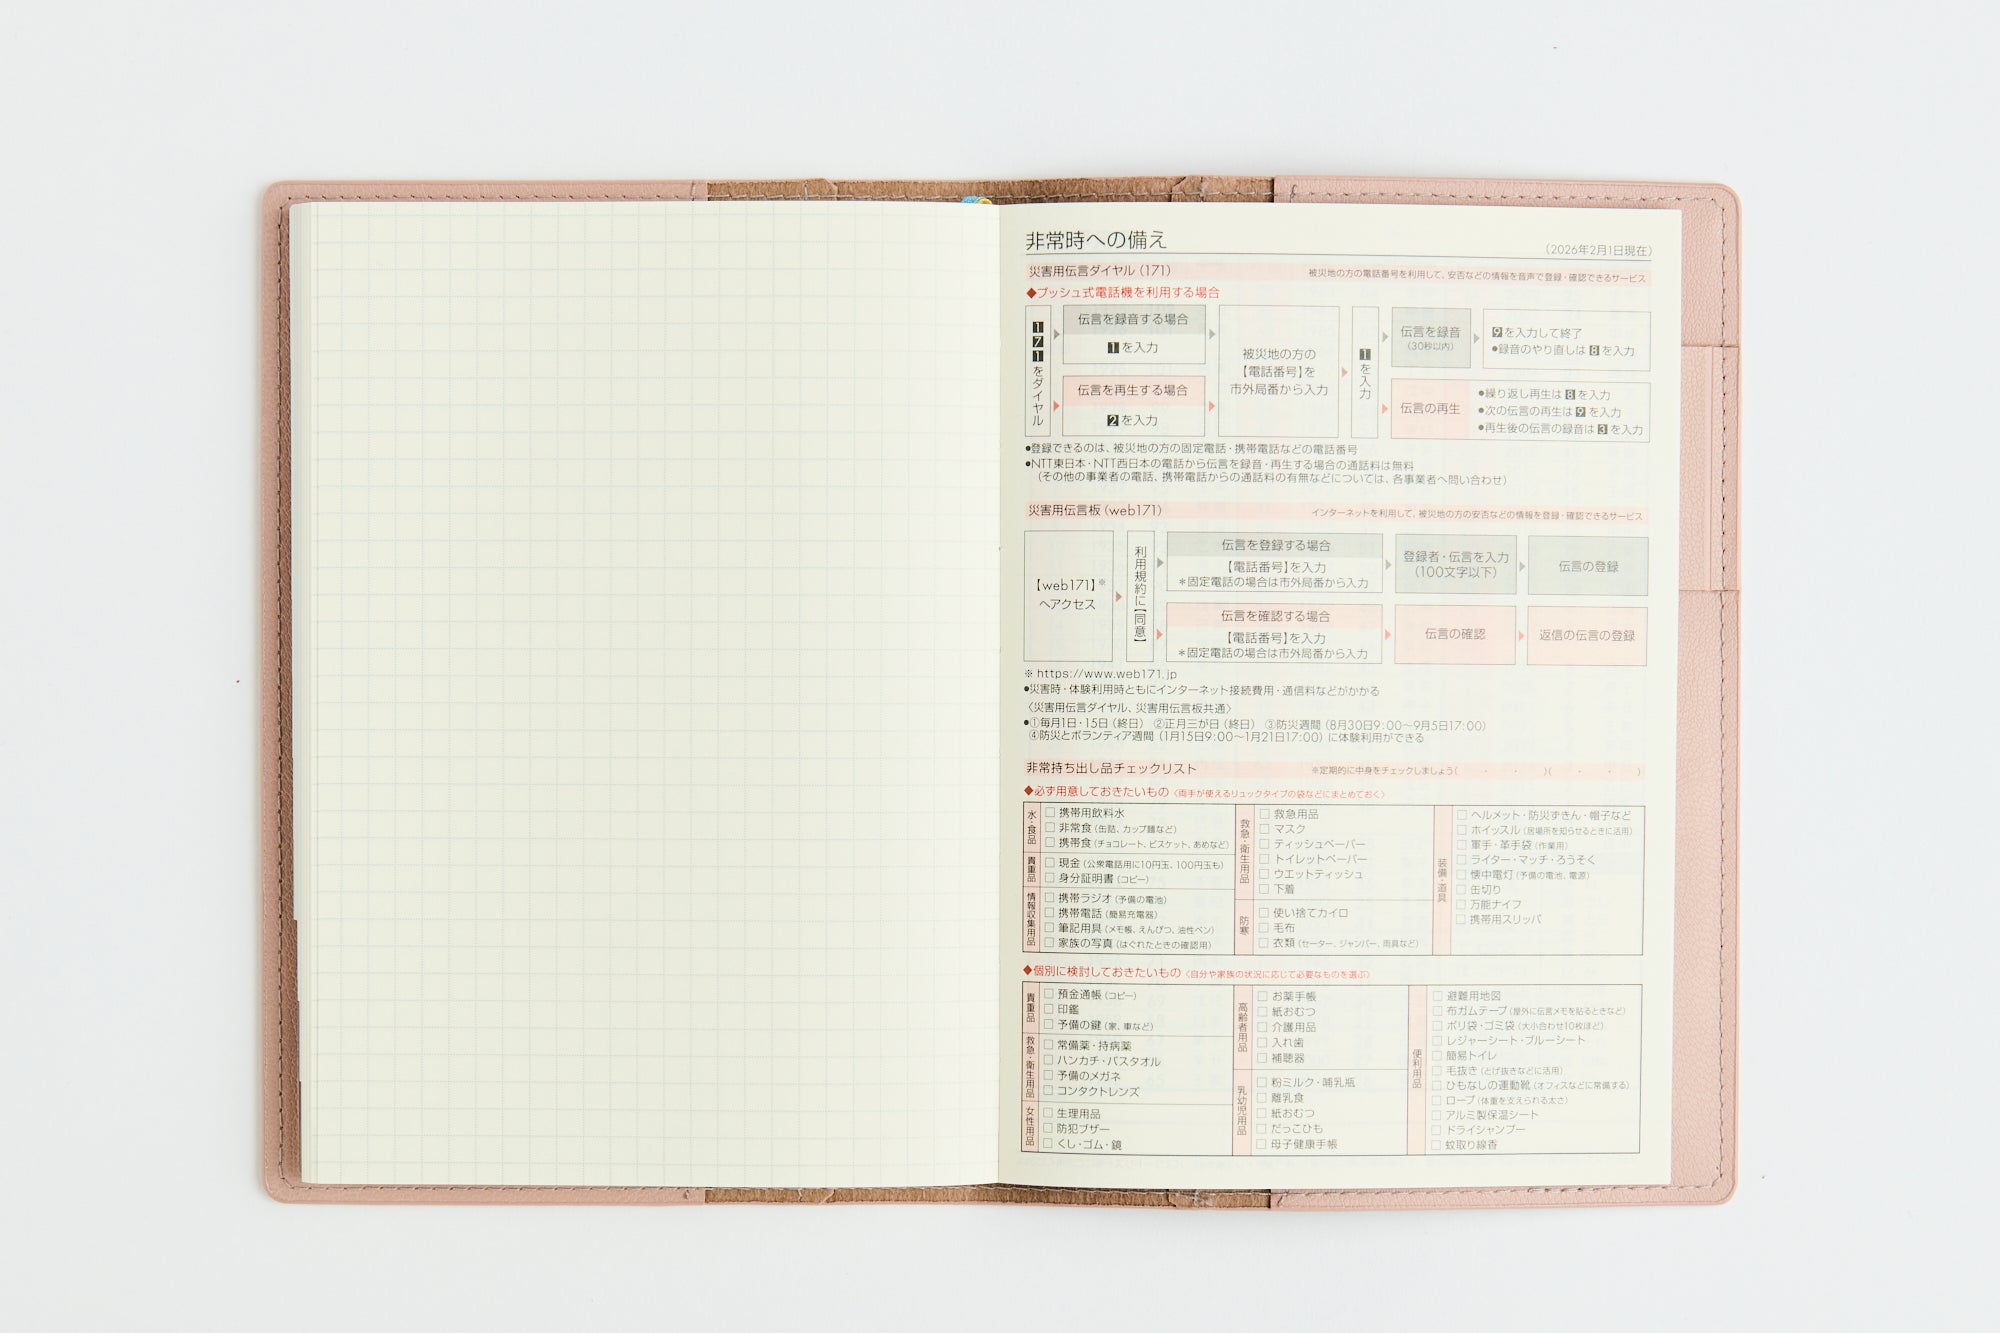 非常時への備え
（2026年2月1日現在）
災害用伝言ダイヤル（171）
被災地の方の電話番号を利用して、安否などの情報を音声で登録・確認できるサービス
◆プッシュ式電話機を利用する場合
171をダイヤル
伝言を録音する場合
1を入力
伝言を再生する場合
2を入力
被災地の方の
【電話番号】を
市外局番から入力
1を入力
伝言を録音
（30秒以内）
9を入力して終了
●録音のやり直しは8を入力
伝言の再生
●繰り返し再生は8を入力
●次の伝言の再生は9を入力
●再生後の伝言の録音は3を入力
●登録できるのは、被災地の方の固定電話・携帯電話などの電話番号
●NTT東日本・NTT西日本の電話から伝言を録音・再生する場合の通話料は無料
（その他の事業者の電話、携帯電話からの通話料の有無などについては、各事業者へ問い合わせ）
災害用伝言板（web171）
インターネットを利用して、被災地の方の安否などの情報を登録・確認できるサービス
【web171】※
へアクセス
利用規約に【同意】
伝言を登録する場合
【電話番号】を入力
＊固定電話の場合は市外局番から入力
登録者・伝言を入力
（100文字以下）
伝言の登録
伝言を確認する場合
【電話番号】を入力
＊固定電話の場合は市外局番から入力
伝言の確認
返信の伝言の登録
※ https://www.web171.jp
●災害時・体験利用時ともにインターネット接続費用・通信料などがかかる
〈災害用伝言ダイヤル、災害用伝言板共通〉
●①毎月1日・15日（終日） ②正月三が日（終日） ③防災週間（8月30日9：00～9月5日17：00）
④防災とボランティア週間（1月15日9：00～1月21日17：00）に体験利用ができる
非常持ち出し品チェックリスト
※定期的に中身をチェックしましょう（　・　・　）（　・　・　）
◆必ず用意しておきたいもの〈両手が使えるリュックタイプの袋などにまとめておく〉
水・食品
□ 携帯用飲料水
□ 非常食（缶詰、カップ麺など）
□ 携帯食（チョコレート、ビスケット、あめなど）
貴重品
□ 現金（公衆電話用に10円玉、100円玉も）
□ 身分証明書（コピー）
情報収集用品
□ 携帯ラジオ（予備の電池）
□ 携帯電話（簡易充電器）
□ 筆記用具（メモ帳、えんぴつ、油性ペン）
□ 家族の写真（はぐれたときの確認用）
救急・衛生用品
□ 救急用品
□ マスク
□ ティッシュペーパー
□ トイレットペーパー
□ ウエットティッシュ
□ 下着
防寒
□ 使い捨てカイロ
□ 毛布
□ 衣類（セーター、ジャンパー、雨具など）
装備・道具
□ ヘルメット・防災ずきん・帽子など
□ ホイッスル（居場所を知らせるときに活用）
□ 軍手・革手袋（作業用）
□ ライター・マッチ・ろうそく
□ 懐中電灯（予備の電池、電源）
□ 缶切り
□ 万能ナイフ
□ 携帯用スリッパ
◆個別に検討しておきたいもの〈自分や家族の状況に応じて必要なものを選ぶ〉
貴重品
□ 預金通帳（コピー）
□ 印鑑
□ 予備の鍵（家、車など）
救急・衛生用品
□ 常備薬・持病薬
□ ハンカチ・バスタオル
□ 予備のメガネ
□ コンタクトレンズ
女性用品
□ 生理用品
□ 防犯ブザー
□ くし・ゴム・鏡
高齢者用品
□ お薬手帳
□ 紙おむつ
□ 介護用品
□ 入れ歯
□ 補聴器
乳幼児用品
□ 粉ミルク・哺乳瓶
□ 離乳食
□ 紙おむつ
□ だっこひも
□ 母子健康手帳
便利用品
□ 避難用地図
□ 布ガムテープ（屋外に伝言メモを貼るときなど）
□ ポリ袋・ゴミ袋（大小合わせ10枚ほど）
□ レジャーシート・ブルーシート
□ 簡易トイレ
□ 毛抜き（とげ抜きなどに活用）
□ ひもなしの運動靴（オフィスなどに常備する）
□ ロープ（体重を支えられる太さ）
□ アルミ製保温シート
□ ドライシャンプー
□ 蚊取り線香